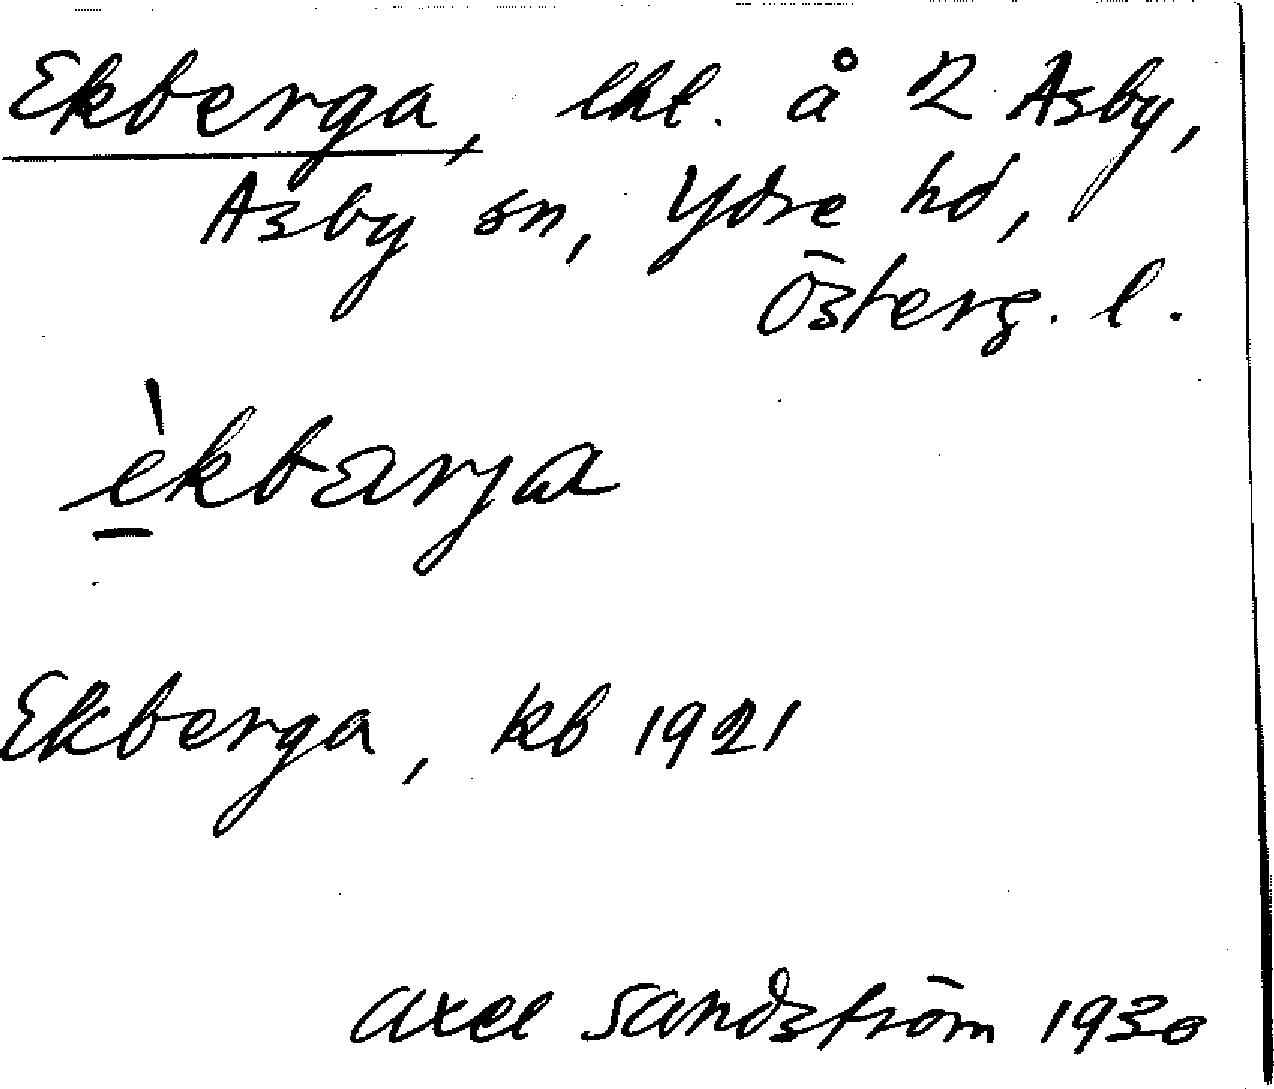 Ekberga, lht. å 2 Asby,
Asby sn, Ydre hd,
Österg. l.
èkbærja
Ekberga, kb 1921
Axel Sandström 1930